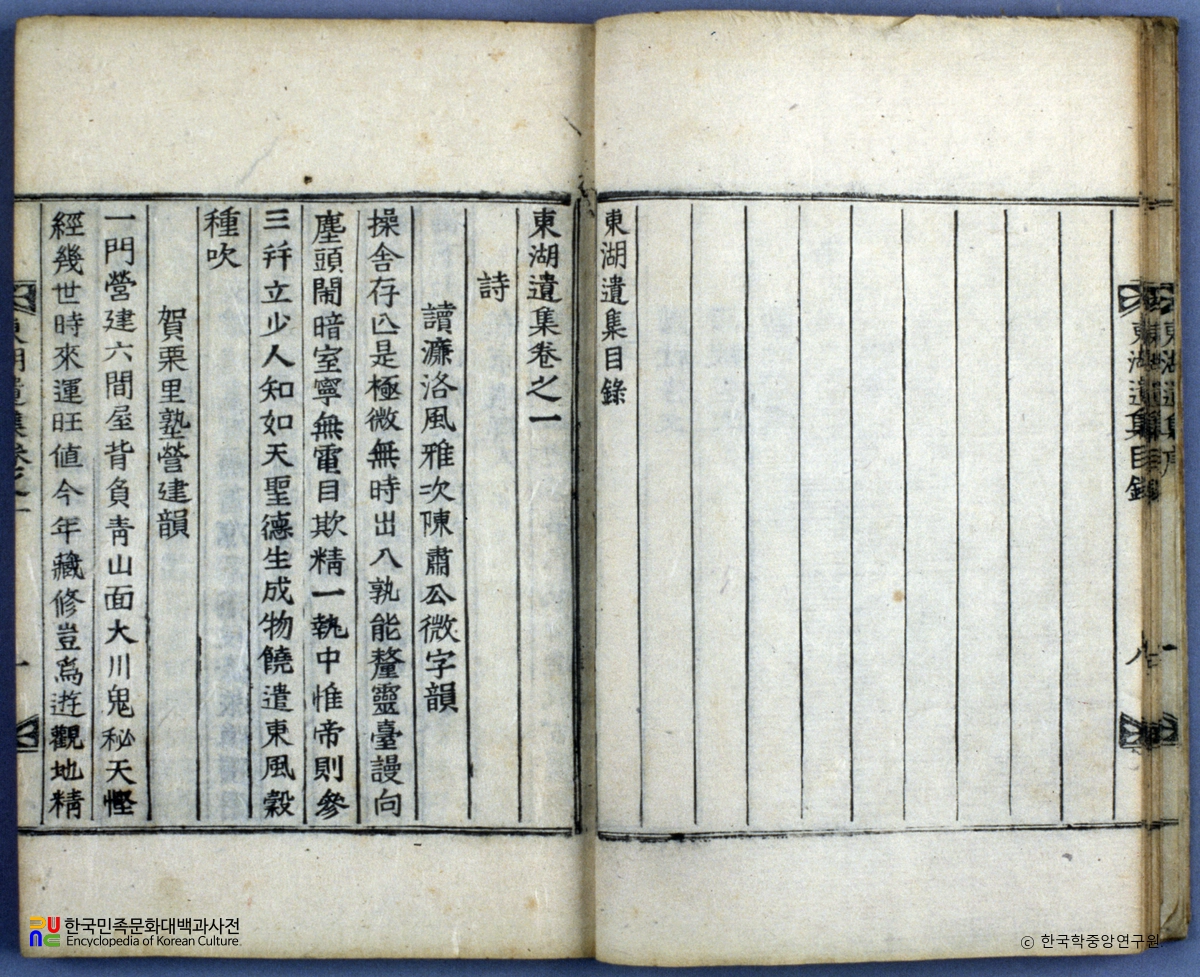 東湖遺集目錄
東湖遺集目錄
八
一
東湖遺集卷之一
詩
讀濂洛風雅次陳肅公微字韻
操舍存亾是極微無時出入孰能釐靈臺謾向
塵頭鬧暗室寧無電目欺精一執中惟帝則參
三幷立少人知如天聖德生成物饒遣東風穀
種吹
賀栗里塾營建韻
一門營建六間屋背負靑山面大川鬼秘天慳
經幾世時來運旺値今年藏修豈爲遊觀地精
東湖遺集卷之一
一
한국민족문화대백과사전
Encyclopedia of Korean Culture
© 한국학중앙연구원